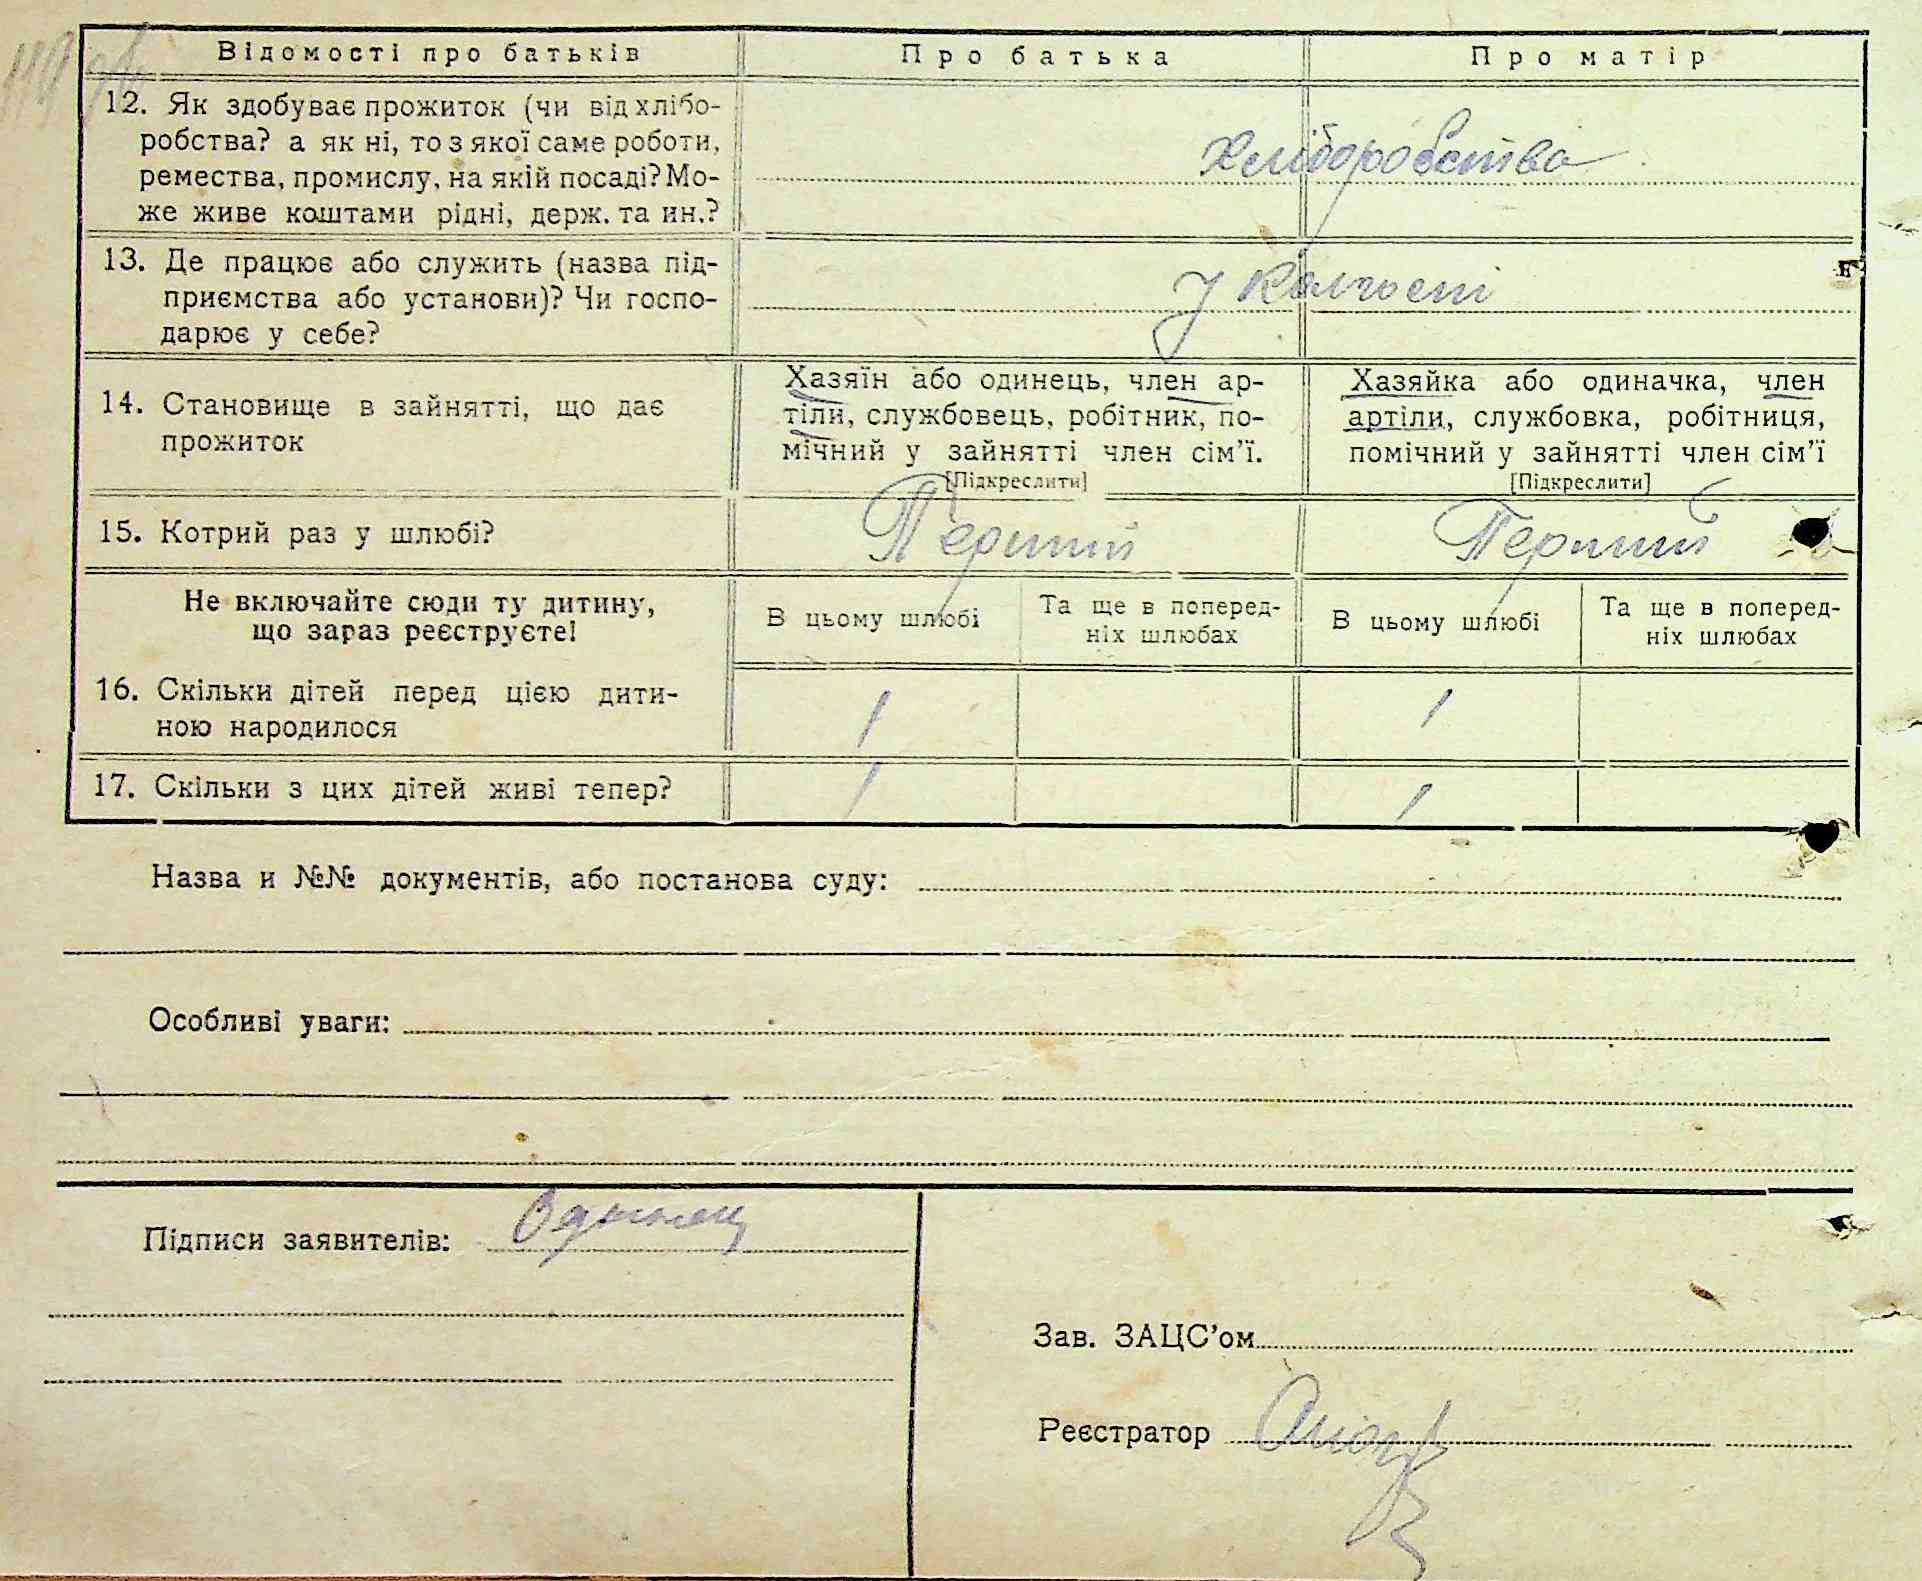 Відомості про батьків	Про батька	Про матір
12. Як здобуває прожиток (чи від хлібо-
робства? а як ні, то з якої саме роботи,
ремества, промислу, на якій посаді? Мо-
же живе коштами рідні, держ. та ин.?
Хліборобства
13. Де працює або служить (назва під-
приємства або установи)? Чи госпо-
дарює у себе?
У колгоспі
14. Становище в зайнятті, що дає
прожиток
Хазяїн або одинець, член ар-
тіли, службовець, робітник, по-
мічний у зайнятті член сім'ї.
[Підкреслити]
Хазяйка або одиначка, член
артіли, службовка, робітниця,
помічний у зайнятті член сім'ї
[Підкреслити]
15. Котрий раз у шлюбі?	Перший	Перший
Не включайте сюди ту дитину,
що зараз реєструєте!
В цьому шлюбі
Та ще в поперед-
ніх шлюбах
В цьому шлюбі
Та ще в поперед-
ніх шлюбах
16. Скільки дітей перед цією дити-
ною народилося
1	1
17. Скільки з цих дітей живі тепер?	1	1
Назва и №№ документів, або постанова суду:
Особливі уваги:
Підписи заявителів: Одинец
Зав. ЗАЦС'ом
Реєстратор